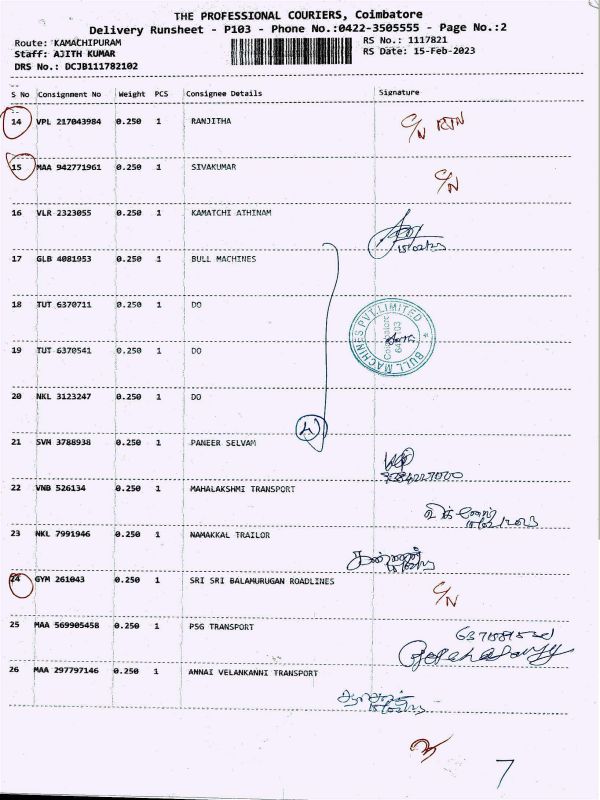 THE PROFESSIONAL COURIERS, Coimbatore
Delivery Runsheet - P103 - Phone No.:0422-3505555 - Page No.:2
Route: KAMACHIPURAM RS No.: 1117821
Staff: AJITH KUMAR RS Date: 15-Feb-2023
DRS No.: DCJB111782102
S No Consignment No Weight PCS Consignee Details Signature
14 VPL 217043984 0.250 1 RANJITHA C/N
15 MAA 942771961 0.250 1 SIVAKUMAR C/N
16 VLR 2323055 0.250 1 KAMATCHI ATHINAM
17 GLB 4081953 0.250 1 BULL MACHINES
18 TUT 6370711 0.250 1 DO
BULL MACHINES PVT.LIMITED
Coimbatore
19 TUT 6370541 0.250 1 DO
20 NKL 3123247 0.250 1 DO
21 SVM 3788938 0.250 1 PANEER SELVAM
22 VNB 526134 0.250 1 MAHALAKSHMI TRANSPORT
23 NKL 7991946 0.250 1 NAMAKKAL TRAILOR
24 GYM 261043 0.250 1 SRI SRI BALAMURUGAN ROADLINES C/N
25 MAA 569905458 0.250 1 PSG TRANSPORT
26 MAA 297797146 0.250 1 ANNAI VELANKANNI TRANSPORT
7